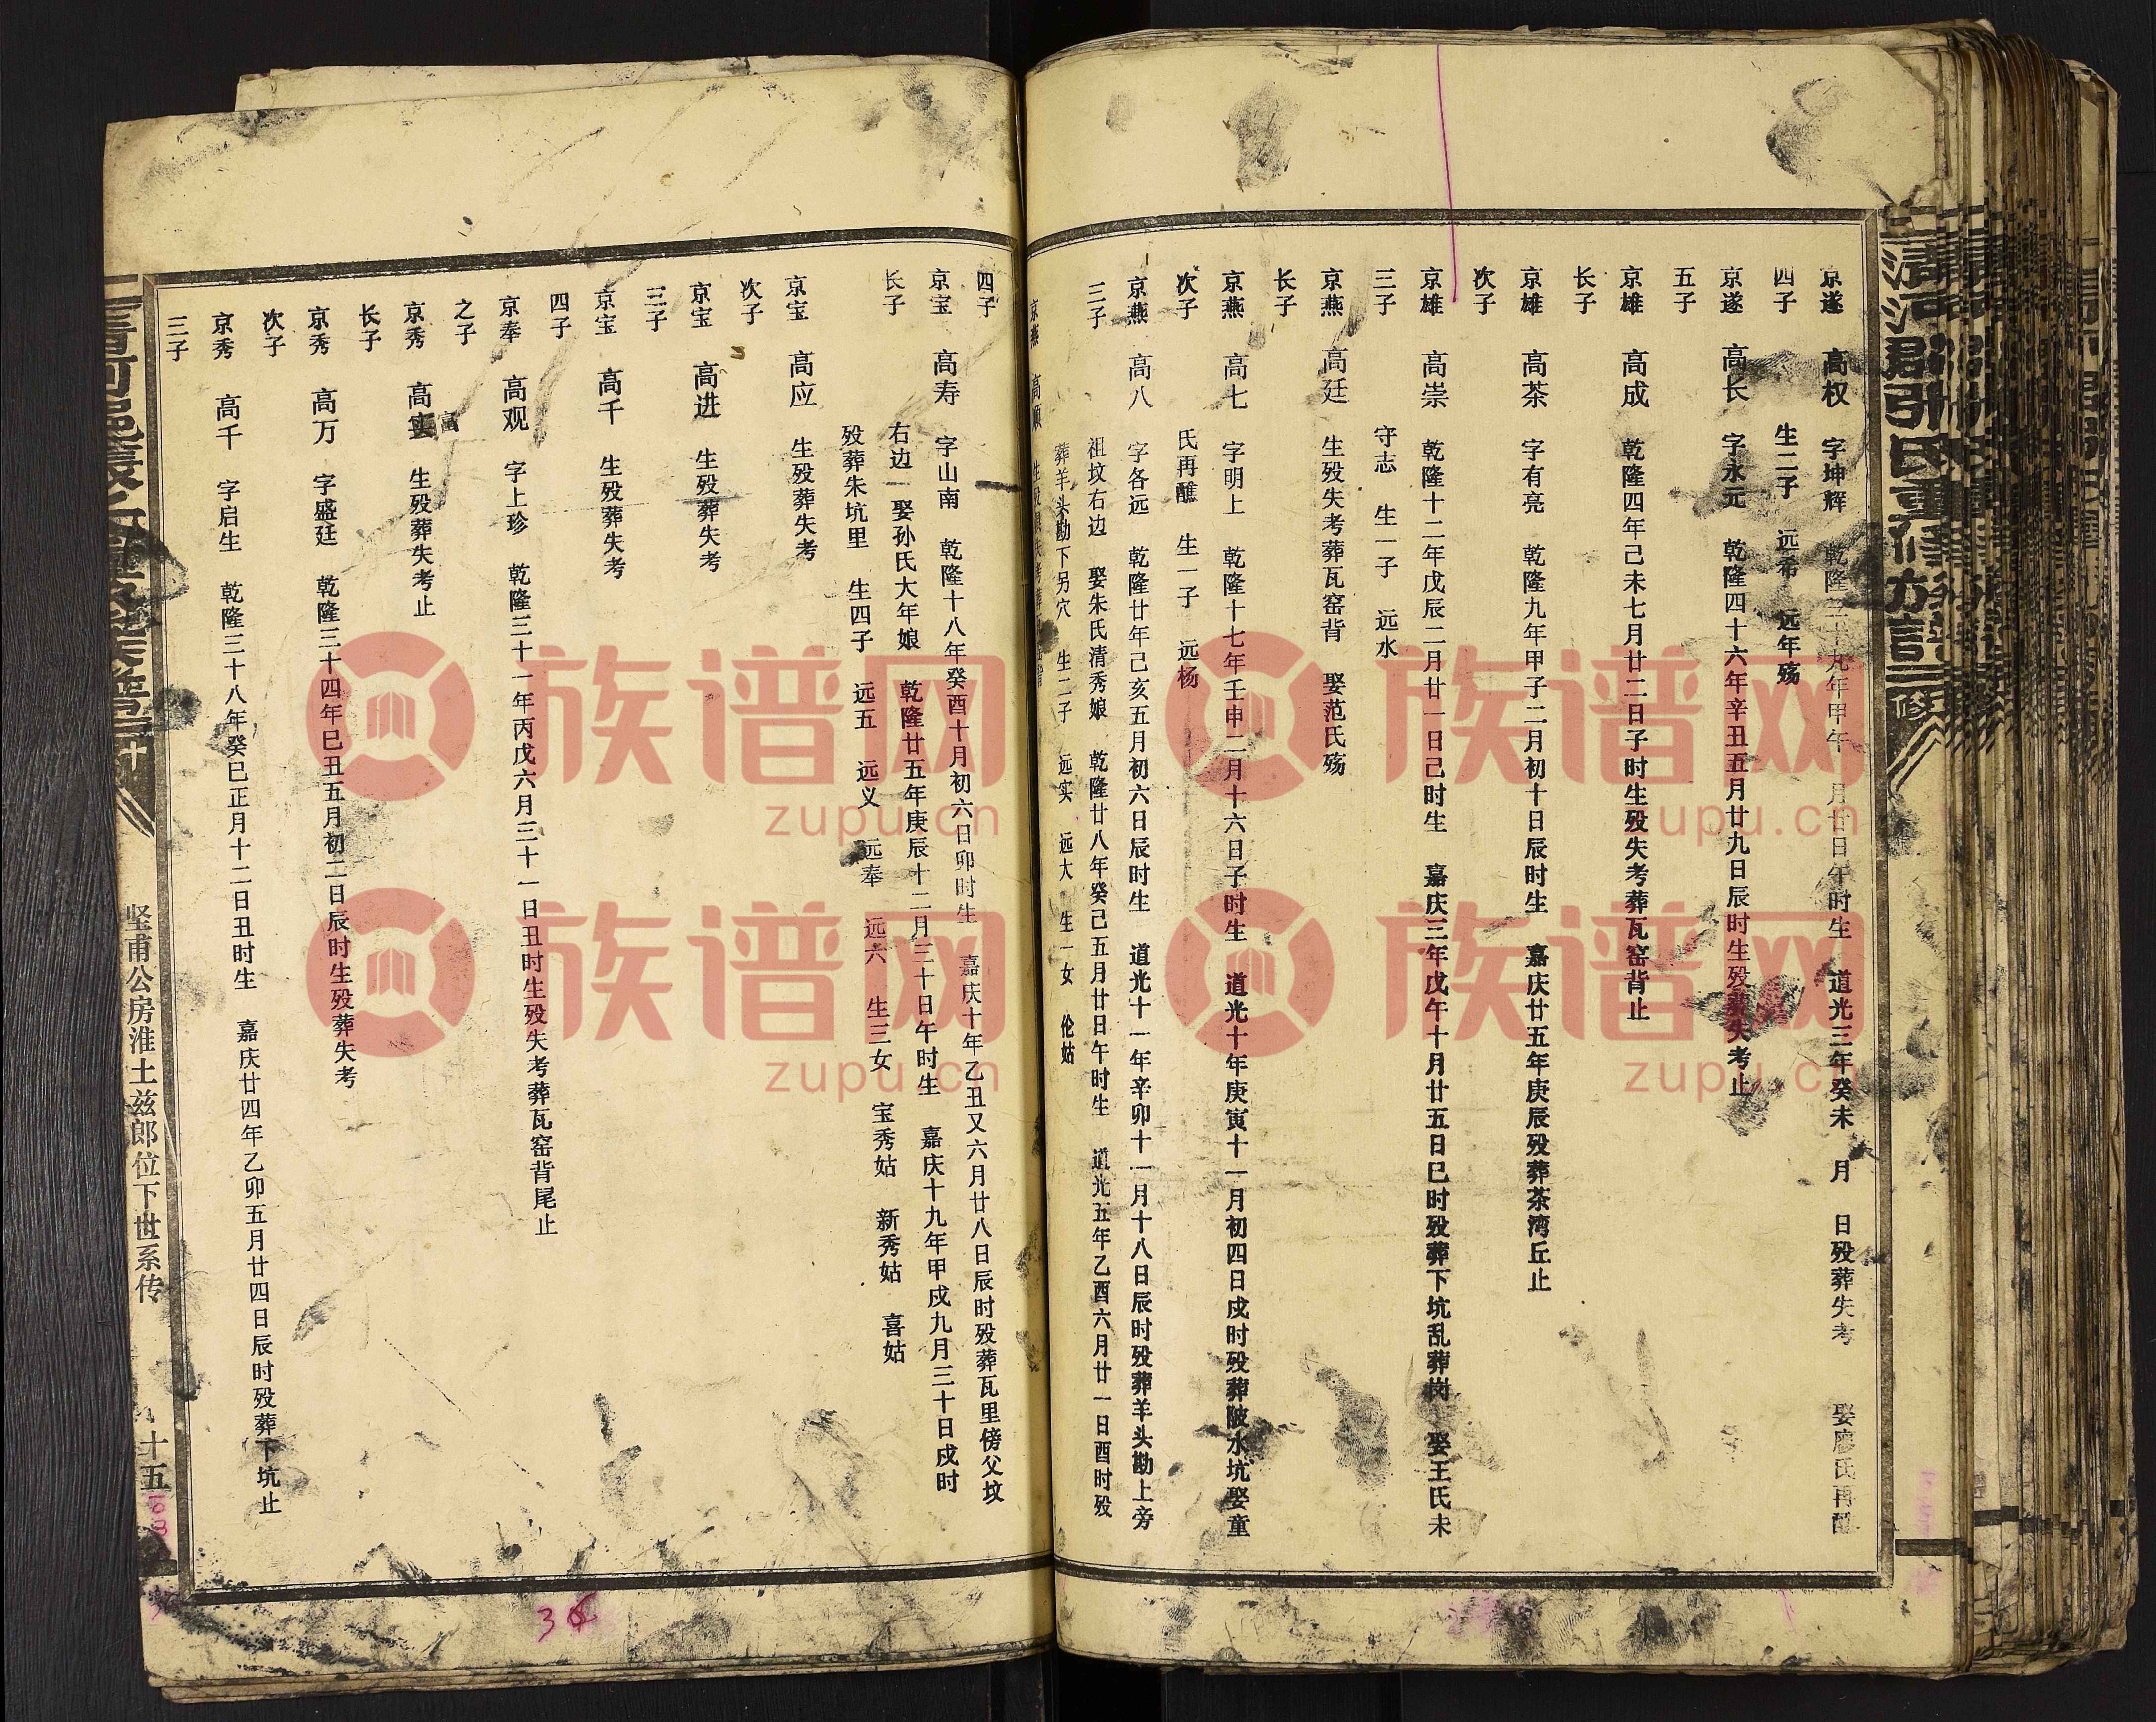 京遂 高权 字坤辉 乾隆三十九年甲午 月廿日午时生 道光三年癸未 月 日殁葬失考 娶廖氏再醮
四子 生二子 远希 远年殇
京遂 高长 字永元 乾隆四十六年辛丑五月廿九日辰时生殁葬失考止
五子
京雄 高成 乾隆四年己未七月廿二日子时生殁失考葬瓦窑背止
长子
京雄 高茶 字有亮 乾隆九年甲子二月初十日辰时生 嘉庆廿五年庚辰殁葬茶湾丘止
次子
京雄 高崇 乾隆十二年戊辰二月廿一日己时生 嘉庆三年戊午十月廿五日巳时殁葬下坑乱葬岗 娶王氏未
三子 守志 生一子 远水
京燕 高廷 生殁失考葬瓦窑背 娶范氏殇
长子
京燕 高七 字明上 乾隆十七年壬申二月十六日子时生 道光十年庚寅十一月初四日戌时殁葬陂水坑娶童
次子 氏再醮 生一子 远杨
京燕 高八 字各远 乾隆廿年己亥五月初六日辰时生 道光十一年辛卯十一月十八日辰时殁葬羊头勘上旁
三子 祖坟右边 娶朱氏清秀娘 乾隆廿八年癸己五月廿日午时生 道光五年乙酉六月廿一日酉时殁
葬羊头勘下另穴 生二子 远实 远大 生一女 伦姑
京燕 高顺
四子
京宝 高寿 字山南 乾隆十八年癸酉十月初六日卯时生 嘉庆十年乙丑又六月廿八日辰时殁葬瓦里傍父坟
长子 右边一娶孙氏大年娘 乾隆廿五年庚辰十二月三十日午时生 嘉庆十九年甲戌九月三十日戌时
殁葬朱坑里 生四子 远五 远义 远奉 远六 生三女 宝秀姑 新秀姑 喜姑
京宝 高应 生殁葬失考
次子
京宝 高进 生殁葬失考
三子
京宝 高千 生殁葬失考
四子
京奉 高观 字上珍 乾隆三十一年丙戊六月三十一日丑时生殁失考葬瓦窑背尾止
之子
富
京秀 高实 生殁葬失考止
长子
京秀 高万 字盛廷 乾隆三十四年巳丑五月初二日辰时生殁葬失考
次子
京秀 高千 字启生 乾隆三十八年癸巳正月十二日丑时生 嘉庆廿四年乙卯五月廿四日辰时殁葬下坑止
三子
坚甫公房淮土兹郎位下世系传
十五
清河郡张氏重修族谱
族谱网
zupu.cn
族谱网
zupu.cn
族谱网
zupu.cn
族谱网
zupu.cn